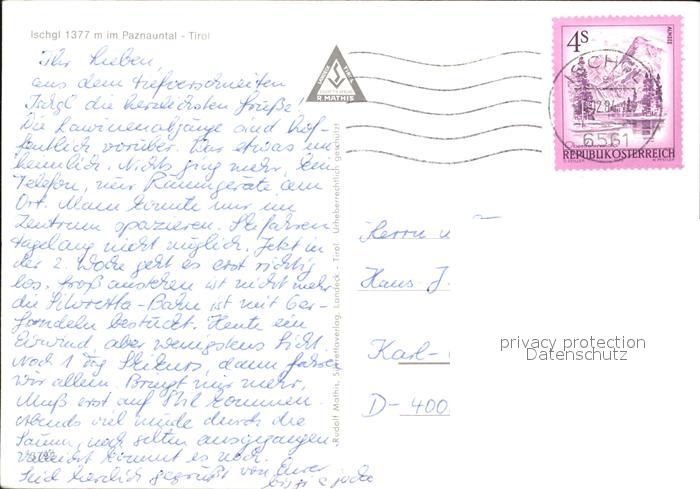 Ischgl 1377 m im Paznauntal - Tirol
Ihr Lieben,
aus dem tiefverschneiten
Ischgl die herzlichsten Grüße!
Die Lawinenabgänge sind hof-
fentlich vorüber. War etwas un-
heimlich. Nichts ging mehr, kein
Telefon, nur Räumgeräte am
Ort. Mann konnte nur im
Zentrum spazieren. Skifahren
tagelang nicht möglich. Jetzt in
der 2. Woche geht es erst richtig
los. Groß anstehen ist nicht mehr
die Silvretta-Bahn ist mit 6er-
Gondeln bestückt. Heute ein
Eiswind, aber wenigstens Sicht.
Noch 1 Tag Skikurs, dann fahren
wir allein. Bringt mir mehr,
Muß erst auf Stil kommen.
Abends viel müde durch die
Sauna, noch selten ausgegangen
vielleicht kommt es noch.
Seid herzlich gegrüßt von Eurer
R. MATHIS
Rudolf Mathis, Silvrettaverlag, Landeck - Tirol. Urheberrechtlich geschützt
4S
ALMSEE
ISCHGL
6561
REPUBLIK ÖSTERREICH
Herrn u
Hans. J.
Karl-
D- 400
privacy protection
Datenschutz